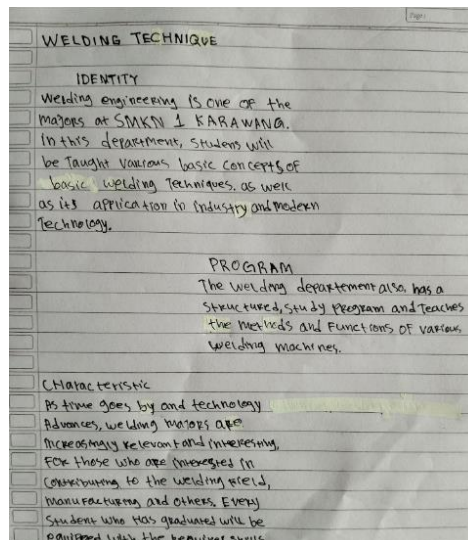 Page:
WELDING TECHNIQUE
IDENTITY
Welding engineering is one of the
majors at SMKN 1 KARAWANG.
in this department, studens will
be Taught various basic concepts of
basic welding Techniques. as well
as its application in industry and modern
Technology.
PROGRAM
The welding departement also, has a
structured, study program and Teaches
the methods and Functions of various
welding machines.
CHaracteristic
As time goes by and technology
Advances, welding majors are
increasingly relevant and interesting,
For those who are interested in
contributing to the welding field,
manufacturing and others. Every
student who Has graduated will be
equipped with the required skills